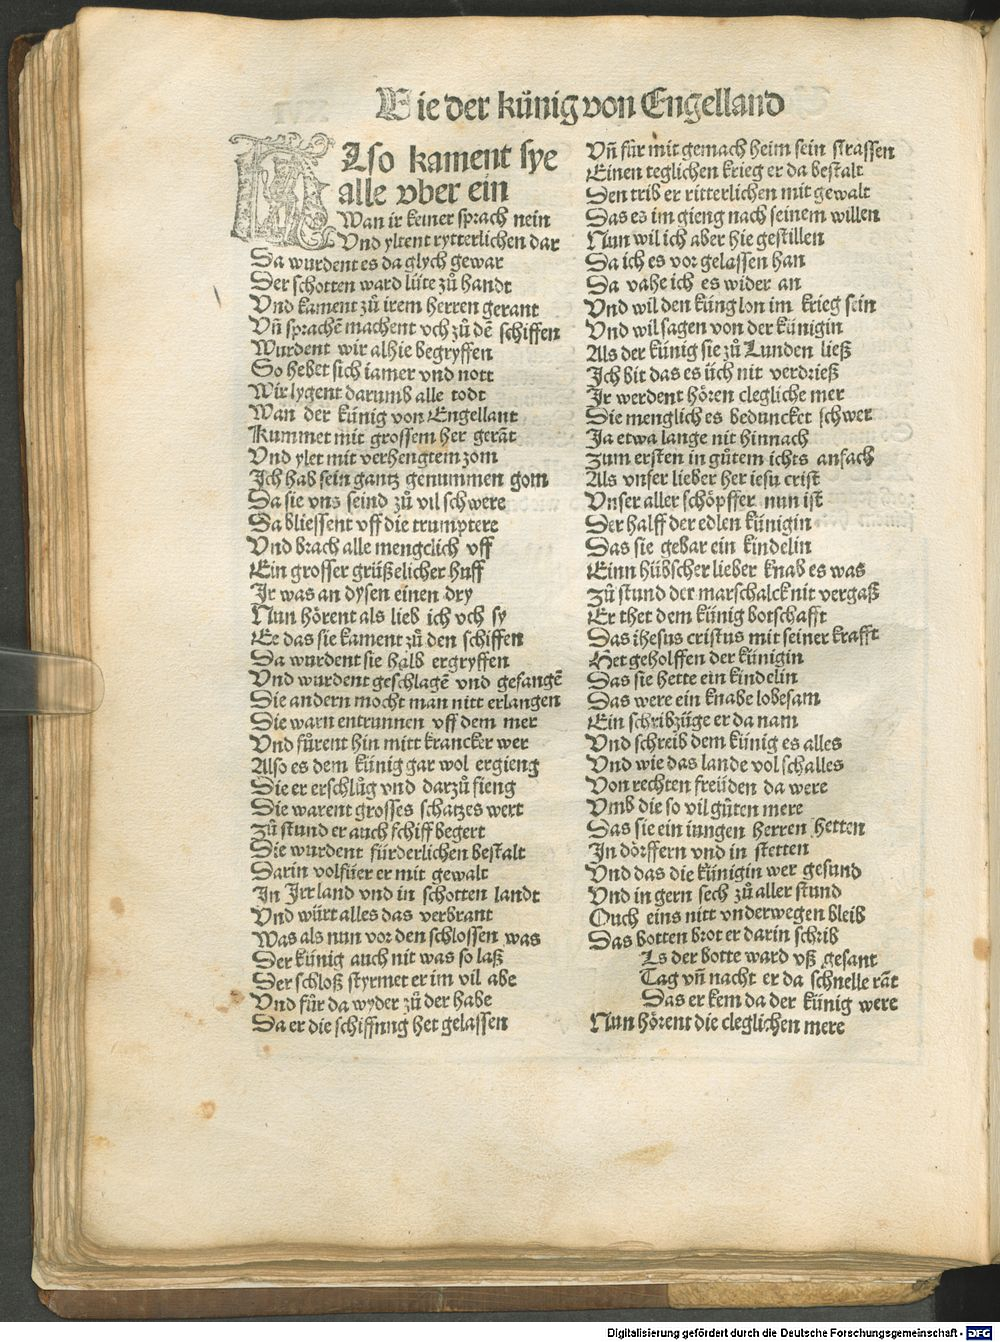 Wie der künig von Engelland
Also kament sye
alle vber ein
Wan ir keiner sprach nein
Vnd yltent rytterlichen dar
Da wurdent es da glych gewar
Der schotten ward lüte zů handt
Vnd kament zů irem herren gerant
Vñ sprachẽ machent vch zů dẽ schiffen
Wurdent wir alhie begryffen
So hebet sich iamer vnd nott
Wir lygent darumb alle todt
Wan der künig von Engellant
Kummet mit grossem her gerãt
Vnd ylet mit verhengtem zom
Ich hab sein gantz genummen gom
Da sie vns seind zů vil schwere
Da bliessent vff die trumptere
Vnd brach alle mengclich vff
Ein grosser grüßelicher huff
Ir was an dysen einen dry
Nun hörent als lieb ich vch sy
Ee das sie kament zů den schiffen
Da wurdent sie halb ergryffen
Vnd wurdent geschlagẽ vnd gefangẽ
Die andern mocht man nitt erlangen
Die warn entrunnen vff dem mer
Vnd fůrent hin mitt krancker wer
Also es dem künig gar wol ergieng
Die er erschlůg vnd darzů fieng
Die warent grosses schatzes wert
Zů stund er auch schiff begert
Die wurdent fürderlichen bestalt
Darin volfüer er mit gewalt
In Irrland vnd in schotten landt
Vnd würt alles das verbrant
Was als nun vor den schlossen was
Der künig auch nit was so laß
Der schloß styrmet er im vil abe
Vnd fůr da wyder zů der habe
Da er die schiffnng het gelassen
Vñ für mit gemach heim sein strassen
Einen teglichen krieg er da bestalt
Den trib er ritterlichen mit gewalt
Das es im gieng nach seinem willen
Nun wil ich aber hie gestillen
Da ich es vor gelassen han
Da vahe ich es wider an
Vnd wil den küng lon im krieg sein
Vnd wil sagen von der künigin
Als der künig sie zů Lunden ließ
Ich bit das es üch nit verdrieß
Ir werdent hören clegliche mer
Die menglich es beduncket schwer
Ja etwa lange nit hinnach
Zum ersten in gůtem ichts anfach
Als vnser lieber her iesu crist
Vnser aller schöpffer nun ist
Der halff der edlen künigin
Das sie gebar ein kindelin
Einn hübscher lieber knab es was
Zů stund der marschalck nit vergaß
Er thet dem künig botschafft
Das ihesus cristus mit seiner krafft
Het geholffen der künigin
Das sie hette ein kindelin
Das were ein knabe lobesam
Ein schribzüge er da nam
Vnd schreib dem künig es alles
Vnd wie das lande vol schalles
Von rechten freüden da were
Vmb die so vil gůten mere
Das sie ein iungen herren hetten
In dörffern vnd in stetten
Vnd das die künigin wer gesund
Vnd in gern sech zů aller stund
Ouch eins nitt vnderwegen bleib
Das botten brot er darin schrib
Ls der botte ward vß gesant
Tag vñ nacht er da schnelle rãt
Das er kem da der künig were
Nun hörent die cleglichen mere
Digitalisierung gefördert durch die Deutsche Forschungsgemeinschaft - DFG